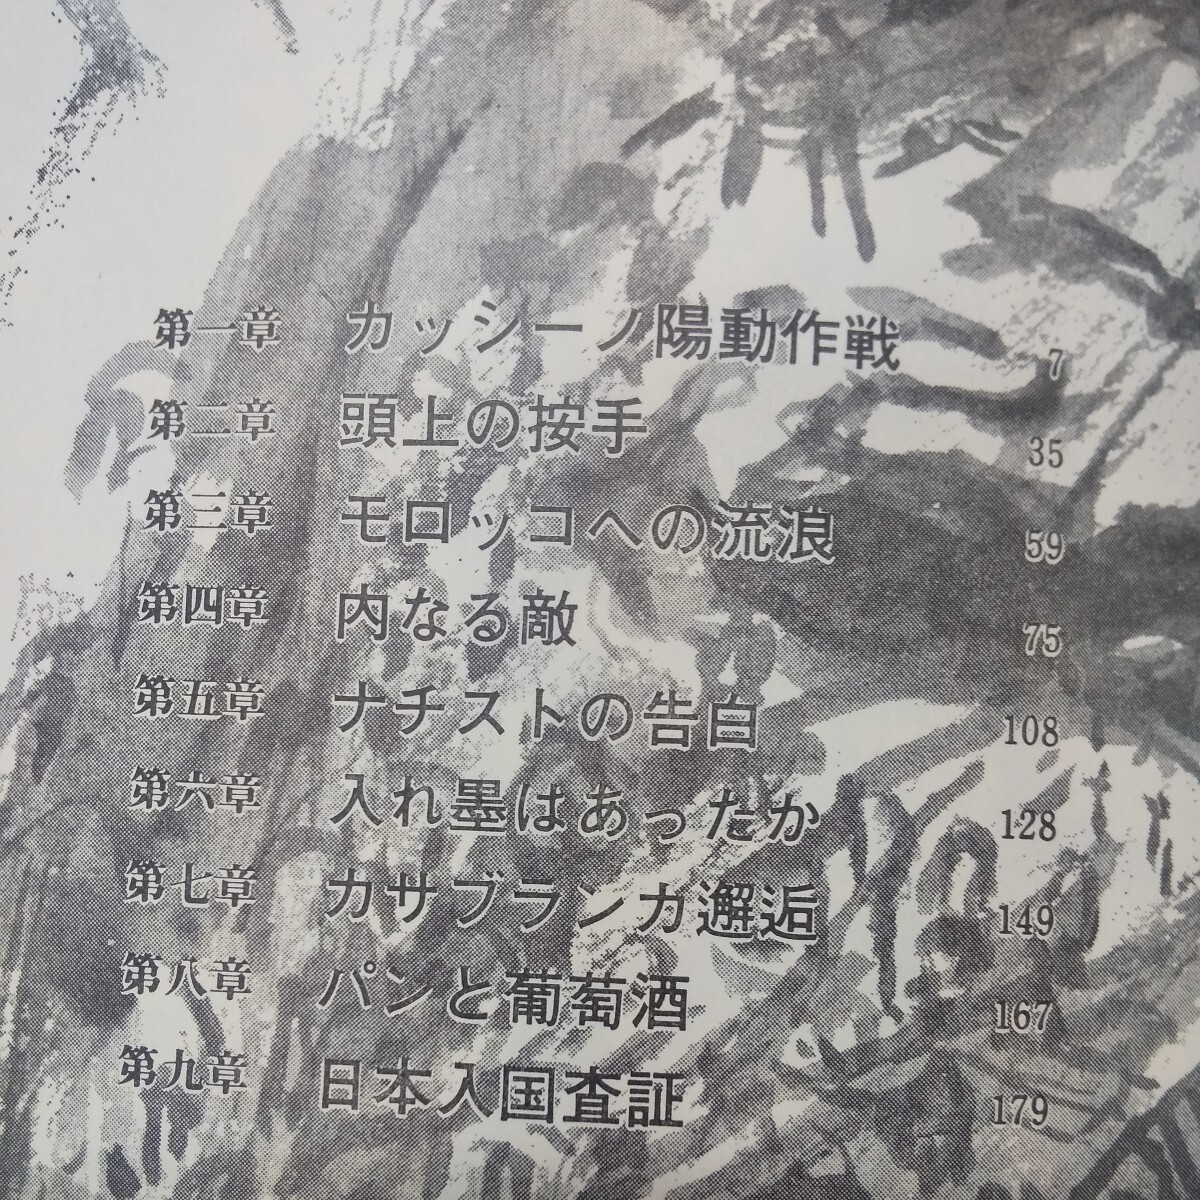 第一章 カッシーノ陽動作戦 7
第二章 頭上の按手 35
第三章 モロッコへの流浪 59
第四章 内なる敵 75
第五章 ナチストの告白 108
第六章 入れ墨はあったか 128
第七章 カサブランカ邂逅 149
第八章 パンと葡萄酒 167
第九章 日本入国査証 179